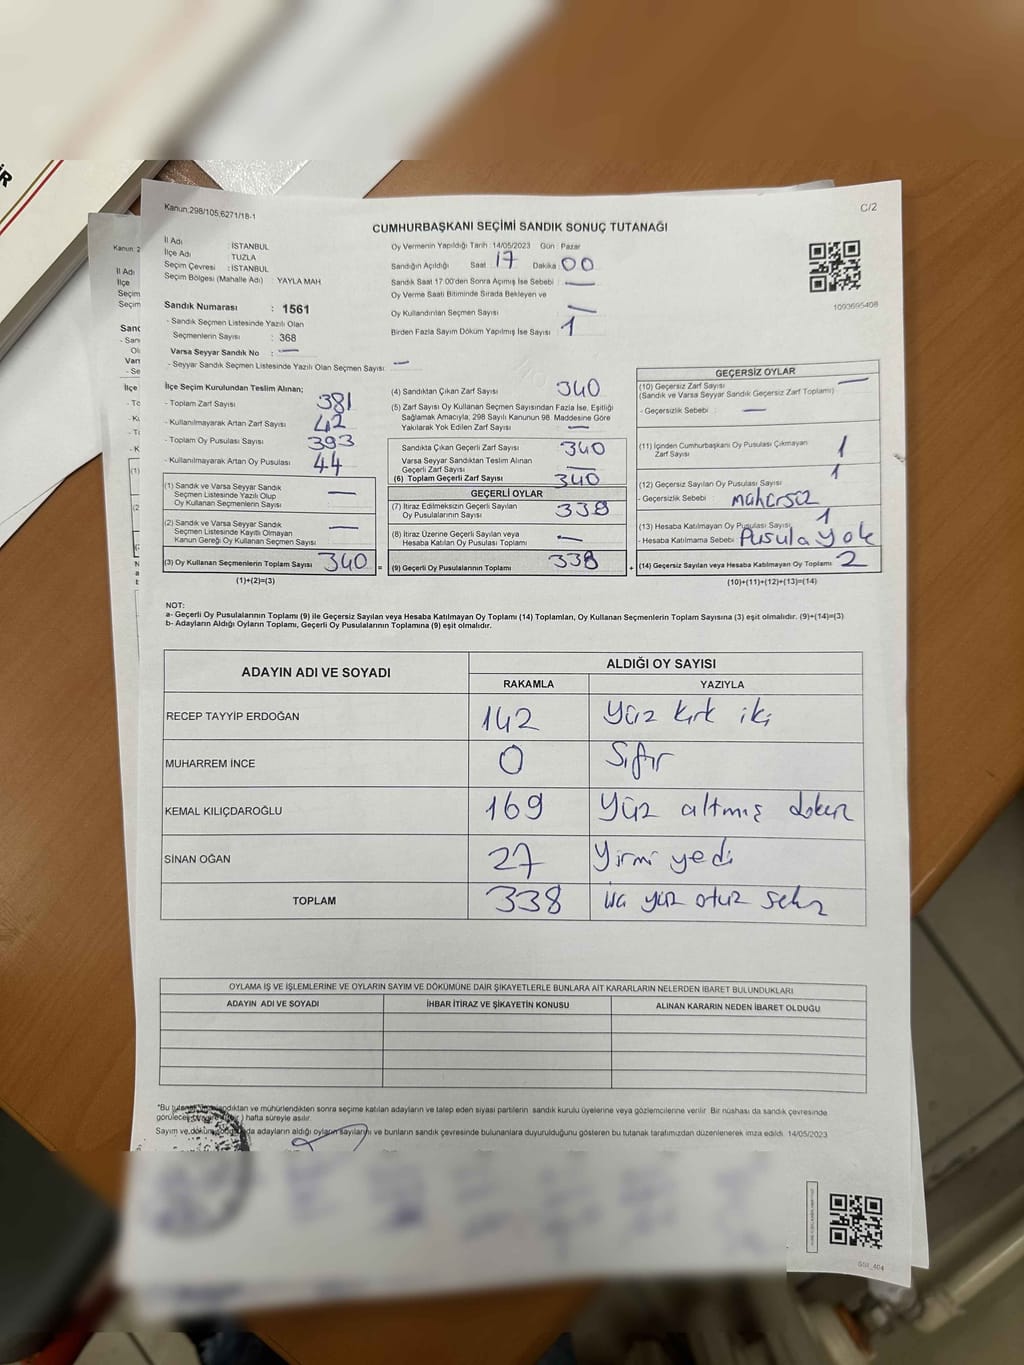 İR
Kanun.298/105,6271/18-1
C/2
CUMHURBAŞKANI SEÇİMİ SANDIK SONUÇ TUTANAĞI
İl Adı : İSTANBUL
İlçe Adı : TUZLA
Seçim Çevresi : İSTANBUL
Seçim Bölgesi (Mahalle Adı) : YAYLA MAH
Sandık Numarası : 1561
- Sandık Seçmen Listesinde Yazılı Olan
Seçmenlerin Sayısı : 368
Varsa Seyyar Sandık No : —
- Seyyar Sandık Seçmen Listesinde Yazılı Olan Seçmen Sayısı : —
Oy Vermenin Yapıldığı Tarih :14/05/2023 Gün : Pazar
Sandığın Açıldığı Saat : 17 Dakika : 00
Sandık Saat 17:00'den Sonra Açımış İse Sebebi : —
Oy Verme Saati Bitiminde Sırada Bekleyen ve
Oy Kullandırılan Seçmen Sayısı : —
Birden Fazla Sayım Döküm Yapılmış İse Sayısı : 1
1093695408
İlçe Seçim Kurulundan Teslim Alınan;
- Toplam Zarf Sayısı 381
- Kullanılmayarak Artan Zarf Sayısı 42
- Toplam Oy Pusulası Sayısı 393
- Kullanılmayarak Artan Oy Pusulası 44
(1) Sandık ve Varsa Seyyar Sandık
Seçmen Listesinde Yazılı Olup
Oy Kullanan Seçmenlerin Sayısı —
(2) Sandık ve Varsa Seyyar Sandık
Seçmen Listesinde Kayıtlı Olmayan
Kanun Gereği Oy Kullanan Seçmen Sayısı —
(3) Oy Kullanan Seçmenlerin Toplam Sayısı 340 =
(1)+(2)=(3)
(4) Sandıktan Çıkan Zarf Sayısı 340
(5) Zarf Sayısı Oy Kullanan Seçmen Sayısından Fazla İse, Eşitliği
Sağlamak Amacıyla, 298 Sayılı Kanunun 98. Maddesine Göre
Yakılarak Yok Edilen Zarf Sayısı —
Sandıkta Çıkan Geçerli Zarf Sayısı 340
Varsa Seyyar Sandıktan Teslim Alınan
Geçerli Zarf Sayısı —
(6) Toplam Geçerli Zarf Sayısı 340
GEÇERLİ OYLAR
(7) İtiraz Edilmeksizin Geçerli Sayılan
Oy Pusulalarının Sayısı 338
(8) İtiraz Üzerine Geçerli Sayılan veya
Hesaba Katılan Oy Pusulası Toplamı —
(9) Geçerli Oy Pusulalarının Toplamı 338 +
GEÇERSİZ OYLAR
(10) Geçersiz Zarf Sayısı —
(Sandık ve Varsa Seyyar Sandık Geçersiz Zarf Toplamı)
- Geçersizlik Sebebi : —
(11) İçinden Cumhurbaşkanı Oy Pusulası Çıkmayan
Zarf Sayısı 1
(12) Geçersiz Sayılan Oy Pusulası Sayısı 1
- Geçersizlik Sebebi : mühürsüz
(13) Hesaba Katılmayan Oy Pusulası Sayısı 1
- Hesaba Katılmama Sebebi : Pusula yok
(14) Geçersiz Sayılan veya Hesaba Katılmayan Oy Toplamı 2
(10)+(11)+(12)+(13)=(14)
NOT:
a- Geçerli Oy Pusulalarının Toplamı (9) ile Geçersiz Sayılan veya Hesaba Katılmayan Oy Toplamı (14) Toplamları, Oy Kullanan Seçmenlerin Toplam Sayısına (3) eşit olmalıdır. (9)+(14)=(3)
b- Adayların Aldığı Oyların Toplamı, Geçerli Oy Pusulalarının Toplamına (9) eşit olmalıdır.
ADAYIN ADI VE SOYADI ALDIĞI OY SAYISI
RAKAMLA YAZIYLA
RECEP TAYYİP ERDOĞAN 142 Yüz kırk iki
MUHARREM İNCE 0 Sıfır
KEMAL KILIÇDAROĞLU 169 Yüz altmış dokuz
SİNAN OĞAN 27 Yirmi yedi
TOPLAM 338 üç yüz otuz sekiz
OYLAMA İŞ VE İŞLEMLERİNE VE OYLARIN SAYIM VE DÖKÜMÜNE DAİR ŞİKAYETLERLE BUNLARA AİT KARARLARIN NELERDEN İBARET BULUNDUKLARI
ADAYIN ADI VE SOYADI İHBAR İTİRAZ VE ŞİKAYETİN KONUSU ALINAN KARARIN NEDEN İBARET OLDUĞU
ve mühürlendikten sonra seçime katılan adayların ve talep eden siyasi partilerin sandık kurulu üyelerine veya gözlemcilerine verilir. Bir nüshası da sandık çevresinde
hafta süreyle asılır.
Sayım ve adayların aldığı oyların sayılarını ve bunların sandık çevresinde bulunanlara duyurulduğunu gösteren bu tutanak tarafımızdan düzenlenerek imza edildi. 14/05/2023